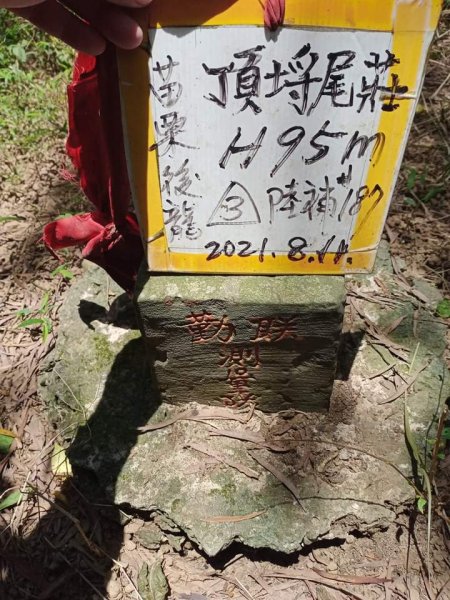 苗栗後龍
頂埒尾莊
H95m
△3 陸補#187
2021.8.11.
聯勤
測量